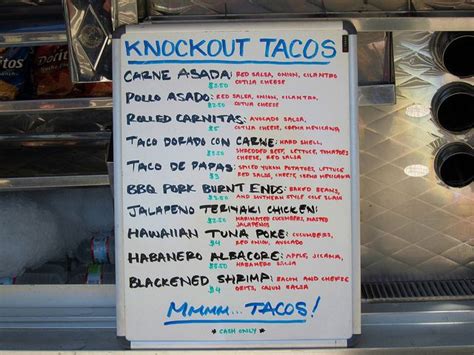 KNOCKOUT TACOS
Doritos
CARNE ASADA: RED SALSA, ONION, CILANTRO
$2.50 COTIJA CHEESE
POLLO ASADO: RED SALSA, ONION, CILANTRO,
$2.50 COTIJA CHEESE
ROLLED CARNITAS: AVOCADO SALSA,
$5 COTIJA CHEESE, CREMA MEXICANA
TACO DORADO CON CARNE: HARD SHELL,
SHREDDED BEEF, LETTUCE, TOMATOES
CHEESE, RED SALSA
TACO DE PAPAS: SPICED YUKON POTATOES, LETTUCE
$3 RED SALSA, CHEESE, CREMA MEXICANA
BBQ PORK BURNT ENDS: BAKED BEANS,
AND SOUTHERN STYLE COLE SLAW
JALAPENO TERIYAKI CHICKEN:
MARINATED CUCUMBERS, ROASTED
JALAPENOS
HAWAIIAN TUNA POKE: CUCUMBERS,
$4 RED ONION, AVOCADO
HABANERO ALBACORE: APPLE, JICAMA,
$3.50 HABANERO SALSA
BLACKENED SHRIMP: BACON AND CHEESE
$4 GRITS, CAJUN SALSA
MMMM... TACOS!
* CASH ONLY *